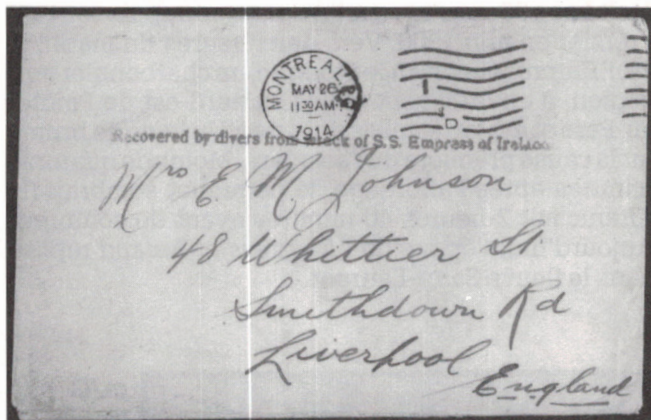 MONTREAL, P.Q.
MAY 26
11 30 AM
1914
Recovered by divers from wreck of S.S. Empress of Ireland.
Mrs E. M Johnson
48 Whittier St
Smithdown Rd
Liverpool
England